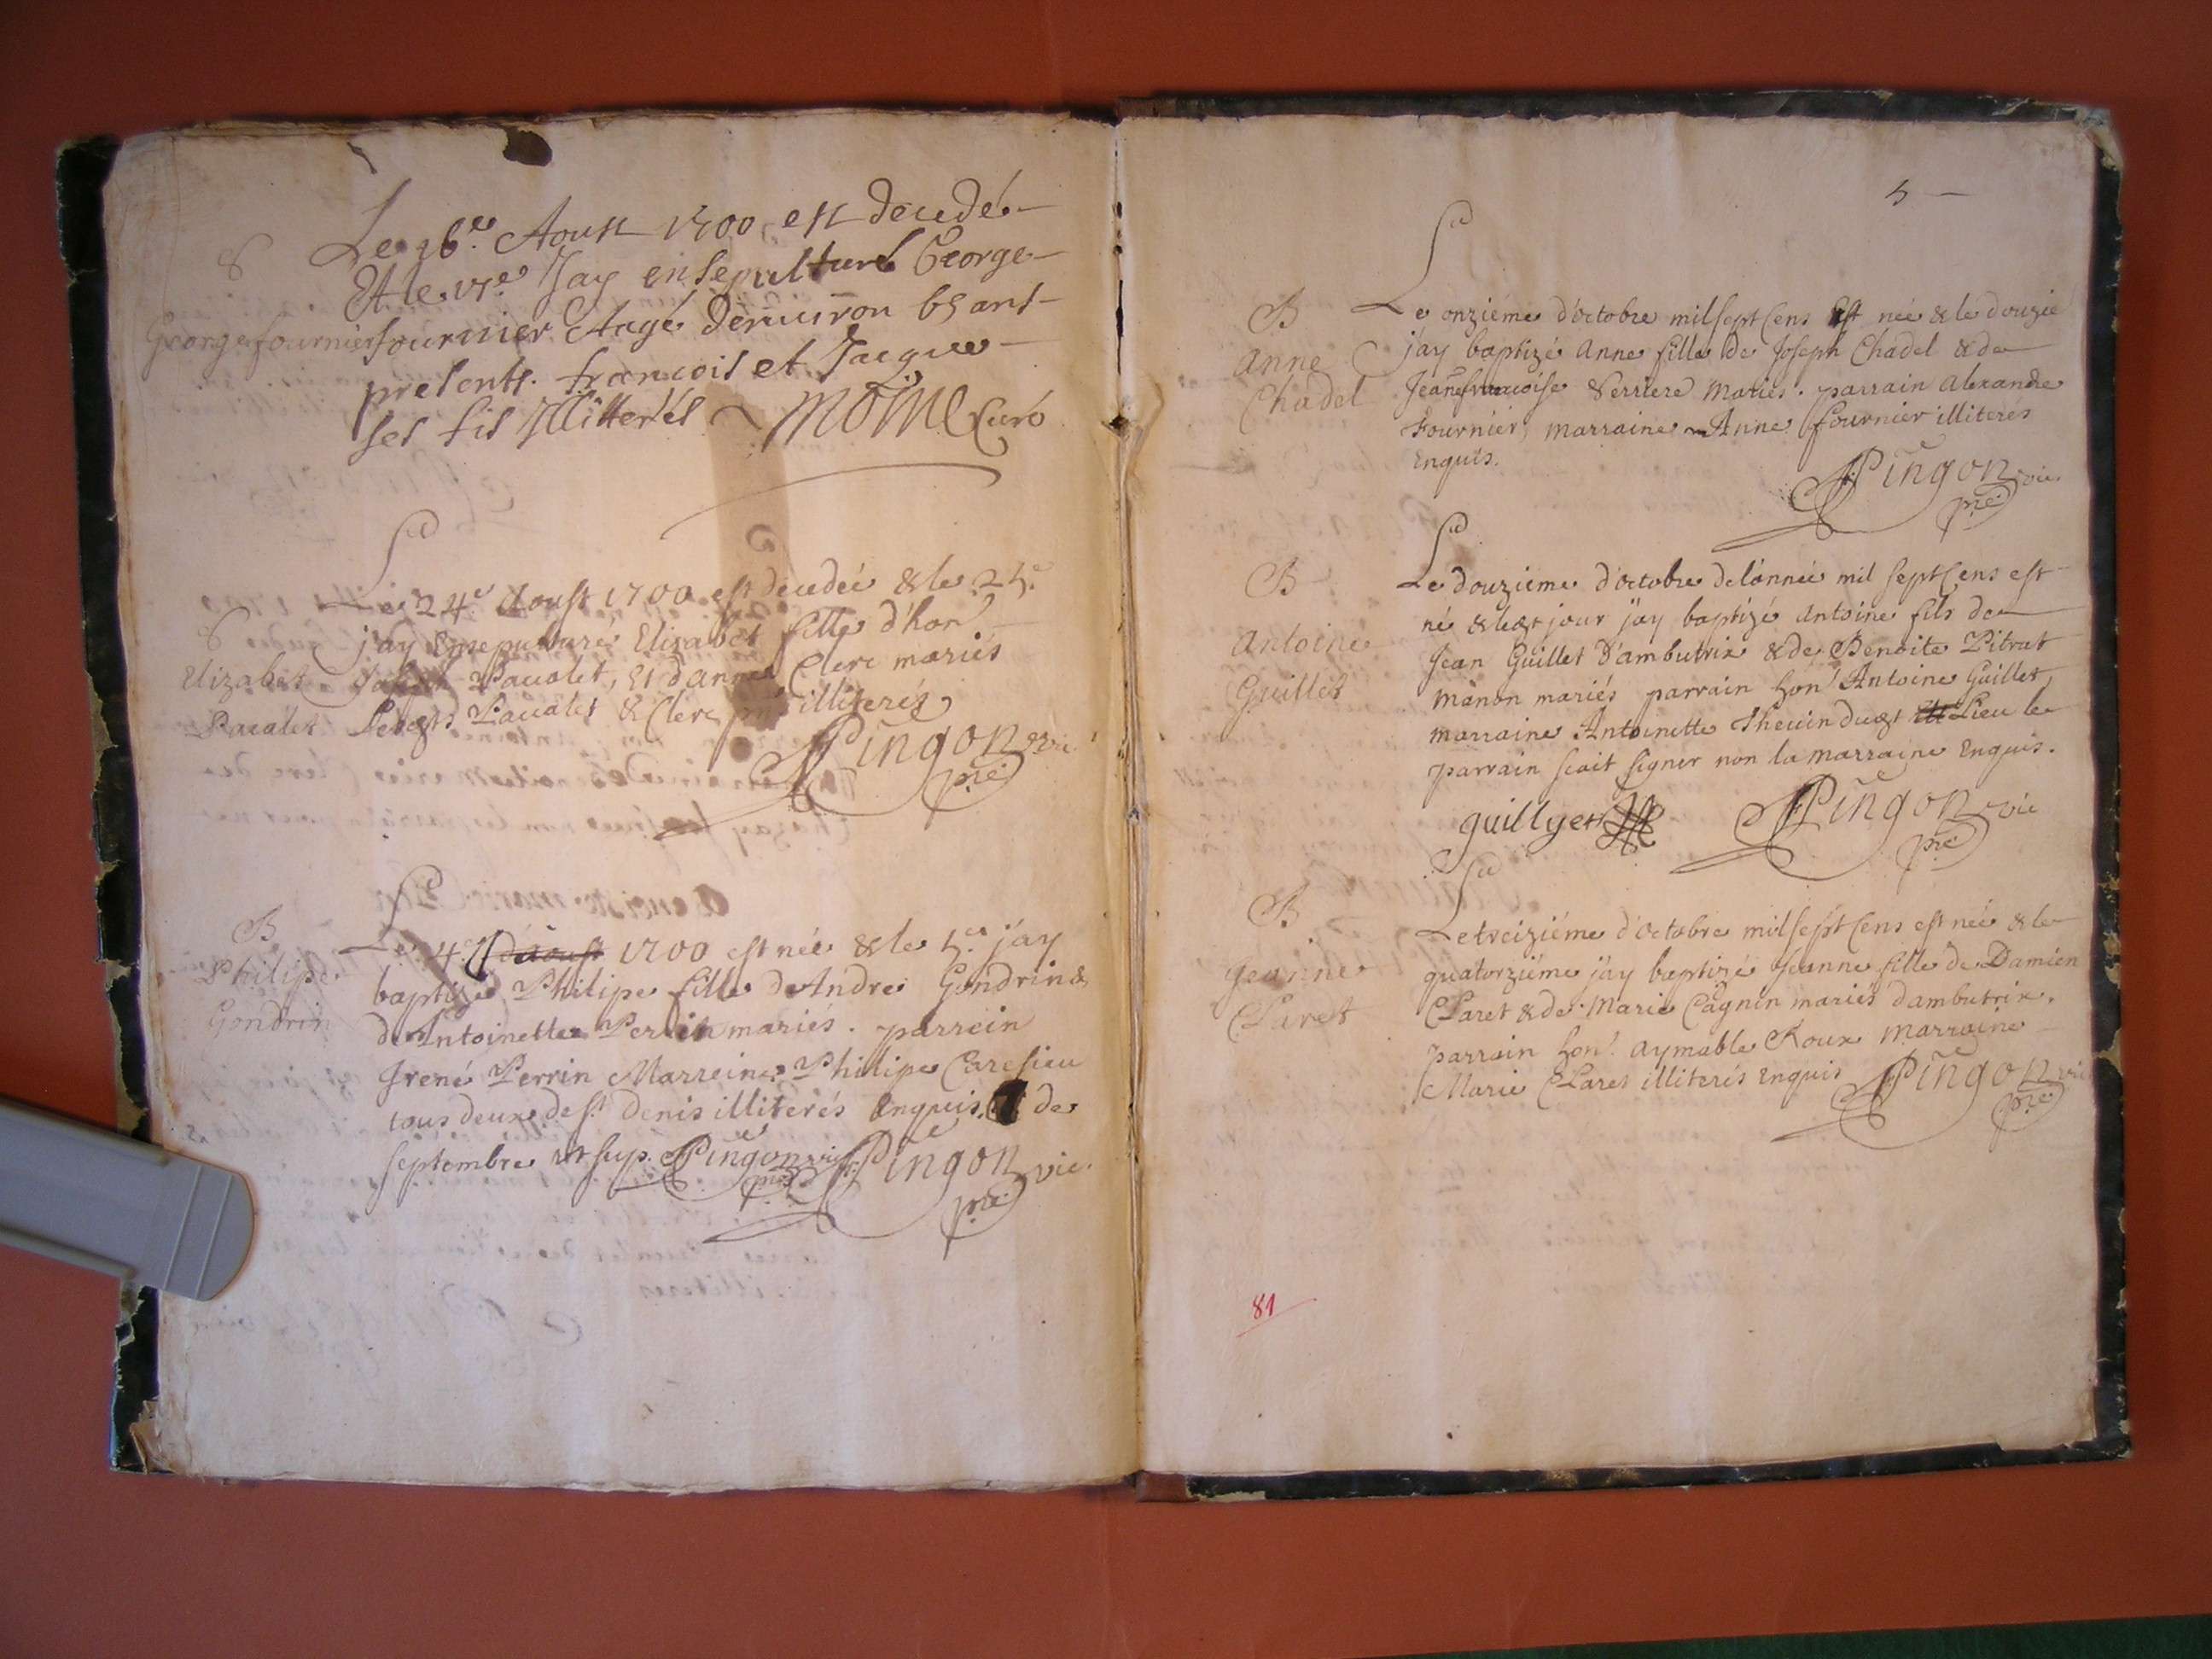 Le 16.e Aoust 1700 est decedé
Et le 17.e Jay ensepulturé George
S
George fournier
fournier Aagé denuiron 65 ans
presents. francois et Jacque
ses fis Illitterés Moine Curé
Le 24.e Aoust 1700 est decedée & le 25.e
jay Ensepulturé Elizabet fille d'hon.
S
Elizabet
Pacalet
Joseph Pacalet, Et d'Anne Clerc mariés
Pacalet & Clerc illiterés
Pingon vic
pre
B
Philipe
Gondrin
Le 4.e d'aoust 1700 est née & le 5.e j'ay
baptizé Philipe fille de Andre Gondrin &
d'Antoinette Perrin mariés. parrein
Irené Perrin Marreine Philipe Caresieu
tous deux de st Denis illiterés Enquis. de
septembre ut sup. Pingon vic Pingon vic.
pre pre
5
B
Anne
Chadel
Le onziéme d'octobre mil sept Cens Est née & le douzie
j'ay baptizé Anne fille de Joseph Chadel & de
Jeane francoise Verriere Mariés. parrain Alexandre
Fournier, marraine Anne fournier illiterés
Enquis.
Pingon vic.
pre
B
Antoine
Guillet
Le douzieme d'octobre de l'année mil sept Cens est
né & led.t jour j'ay baptizé Antoine fils de
Jean Guillet d'ambutrix & de Benoite Pitrat
Manon mariés parrain hon. Antoine Guillet,
marraine Antoinette Theuin dud.t Lieu le
parrain scait signer non la marraine Enquis.
guillyet Pingon vic
pre
B
Jeanne
Claret
Le treiziéme d'octobre mil sept Cens est née & le
quatorziéme j'ay baptizé Jeanne fille de Damien
Claret & de Marie Cagnin mariés d'ambutrix.
parrain hon. Aymable Roux Marraine
Marie Claret illiterés Enquis Pingon vic
pre
81